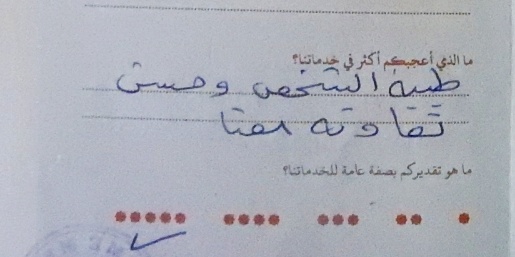 ما الذي أعجبكم أكثر في خدماتنا؟
طيبة الشخص وحسن
تعاونه معنا
ما هو تقديركم بصفة عامة للخدماتنا؟